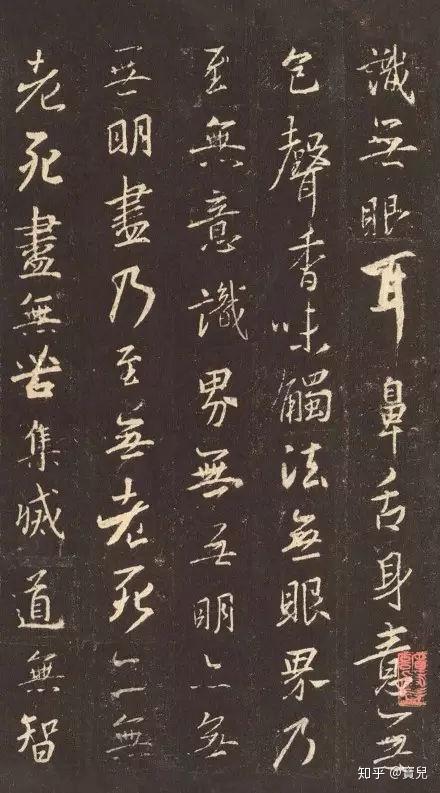 識无眼耳鼻舌身意无
色聲香味觸法無眼界乃
至無意識界無无明亦無
無明盡乃至無老死亦無
老死盡無苦集滅道無智
知乎 @寶兒